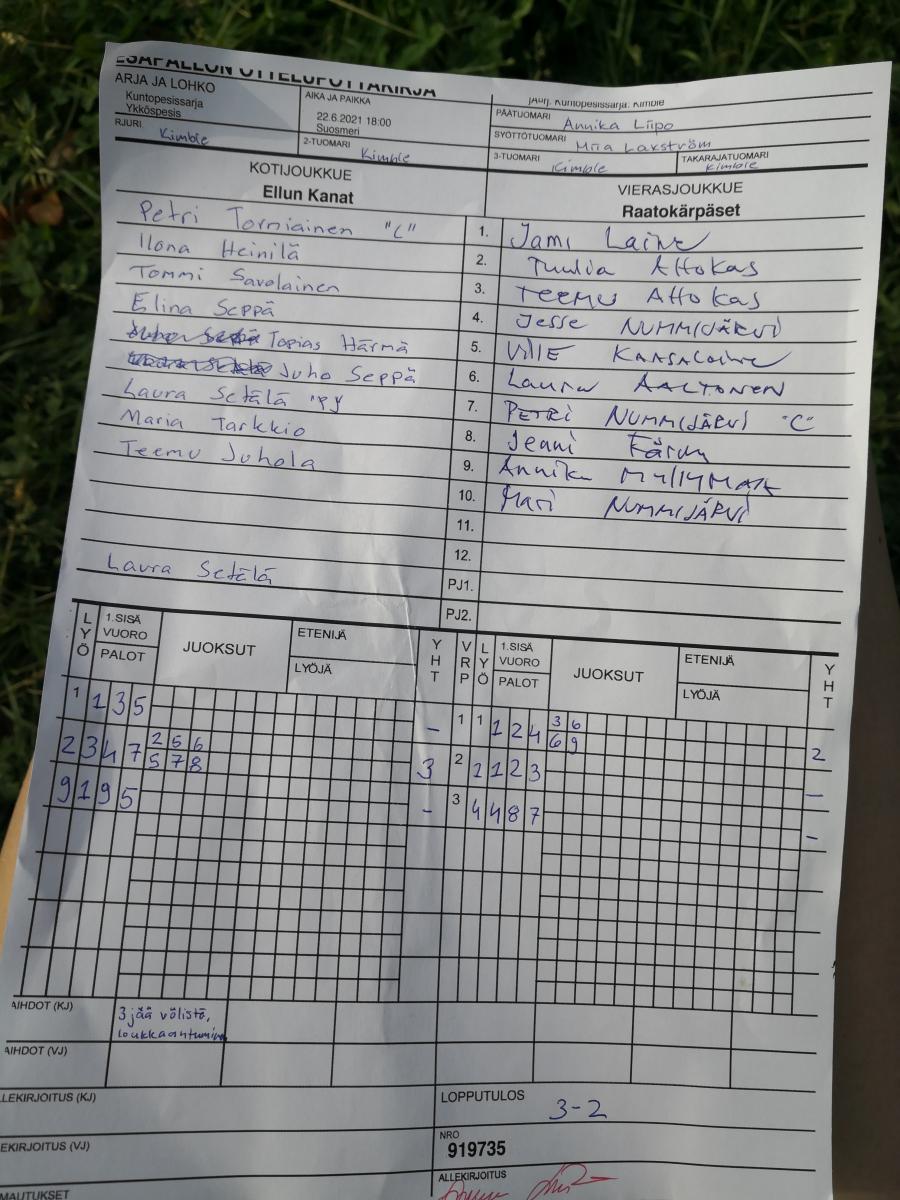 ESÄPALLON OTTELUPÖYTÄKIRJA
ARJA JA LOHKO
Kuntopesissarja
Ykköspesis
AIKA JA PAIKKA
22.6.2021 18:00
Suosmeri
Kuntopesissarja: Kimble
PÄÄTUOMARI Annika Liipo
SYÖTTÖTUOMARI Miia Lakström
RJURI Kimble
2-TUOMARI Kimble
3-TUOMARI Kimble
TAKARAJATUOMARI Kimble
KOTIJOUKKUE
Ellun Kanat
VIERASJOUKKUE
Raatokärpäset
Petri Torniainen "C"
Ilona Heinilä
Tommi Savolainen
Elina Seppä
Topias Härmä
Juho Seppä
Laura Setälä "PJ
Maria Tarkkio
Teemu Juhola
Laura Setälä
1. Jami Laine
2. Tuulia Attokas
3. TEEMU Attokas
4. Jesse NUMMIJÄRVI
5. VILLE KANSALAINE
6. Laura AALTONEN
7. PETRI NUMMIJÄRVI "C"
8. Jenni
9. Annika
10. Mari NUMMIJÄRVI
11.
12.
PJ1.
PJ2.
LYÖ
1.SISÄ
VUORO
PALOT
JUOKSUT
ETENIJÄ
LYÖJÄ
YHT
VRP
LYÖ
1.SISÄ
VUORO
PALOT
JUOKSUT
ETENIJÄ
LYÖJÄ
YHT
1 1 3 5 -
2 3 4 7 2 5 6 3
5 7 8
9 1 9 5 -
1 1 1 2 4 3 6 2
6 9
2 1 1 2 3 -
3 4 4 8 7 -
AIHDOT (KJ)
3 jää välistä,
loukkaantuminen
AIHDOT (VJ)
LEKIRJOITUS (KJ)
EKIRJOITUS (VJ)
MAUTUKSET
LOPPUTULOS
3-2
NRO
919735
ALLEKIRJOITUS